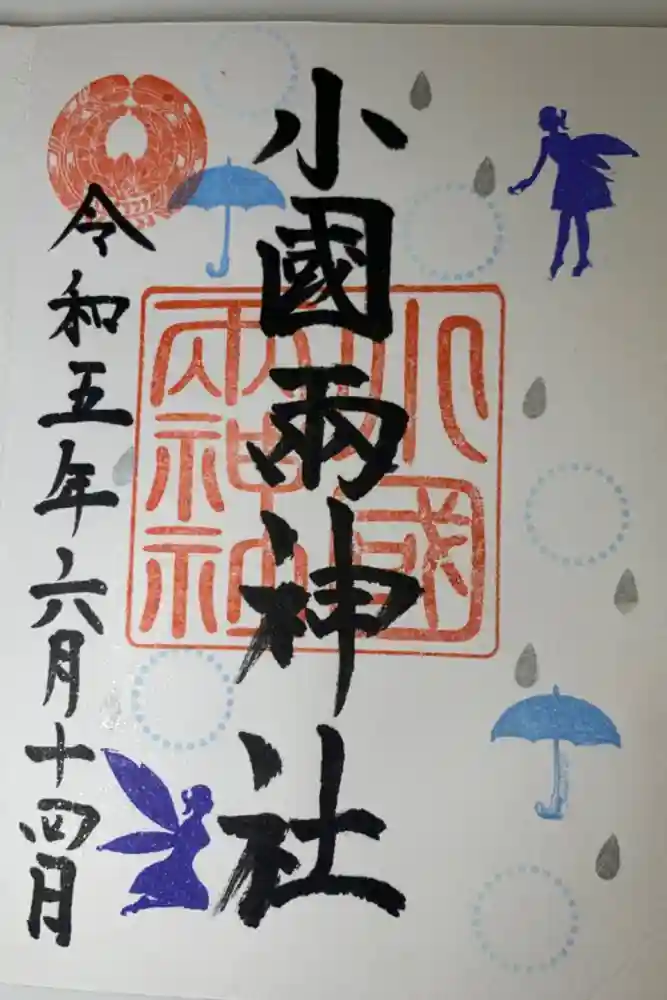 小國兩神社
令和五年六月十四日
小國兩神社